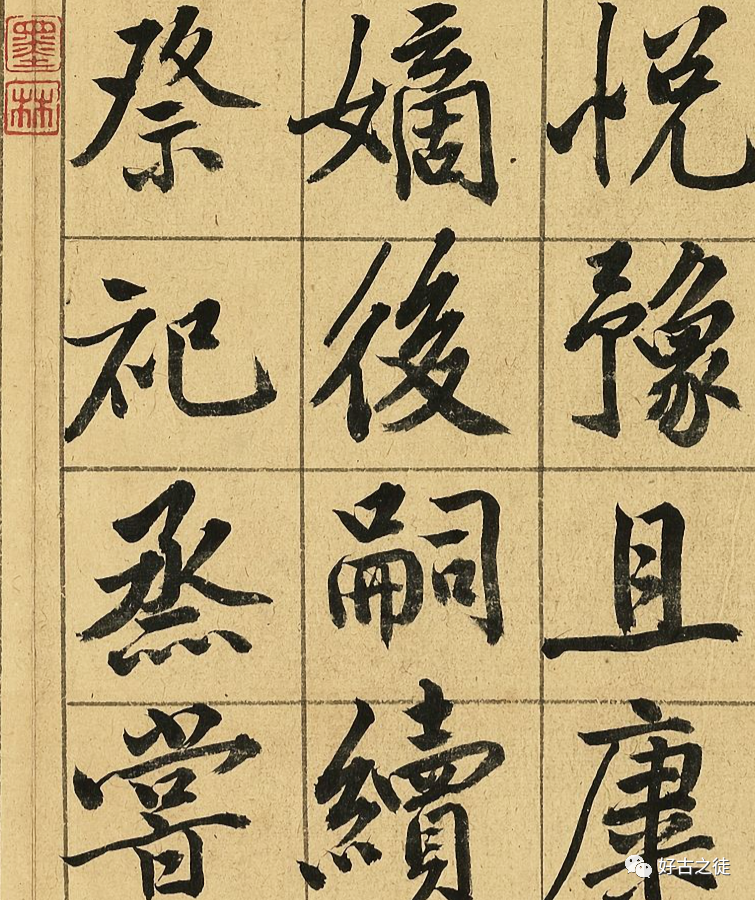 悅豫且康
嫡後嗣續
祭祀烝嘗
墨林
好古之徒